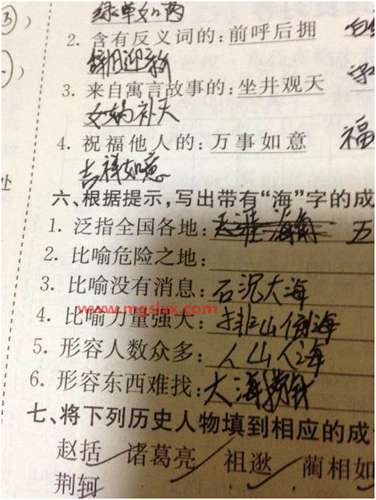 绿草如茵
2. 含有反义词的：前呼后拥
辞旧迎新
3. 来自寓言故事的：坐井观天
女娲补天
4. 祝福他人的：万事如意 福
吉祥如意
处
六、根据提示，写出带有“海”字的成
1. 泛指全国各地：天涯海角 五
2. 比喻危险之地：
3. 比喻没有消息：石沉大海
www.mgslax.com
4. 比喻力量强大：排山倒海
5. 形容人数众多：人山人海
6. 形容东西难找：大海捞针
七、将下列历史人物填到相应的成
赵括 诸葛亮 祖逖 蔺相如
荆轲